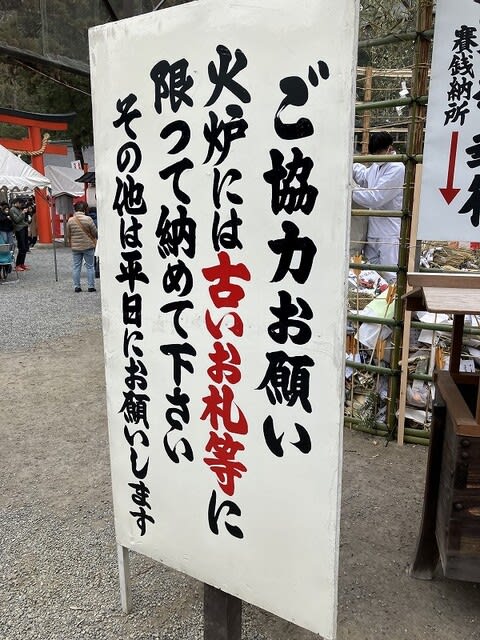 ご協力お願い
火炉には古いお札等に
限つて納めて下さい
その他は平日にお願いします
賽銭納所